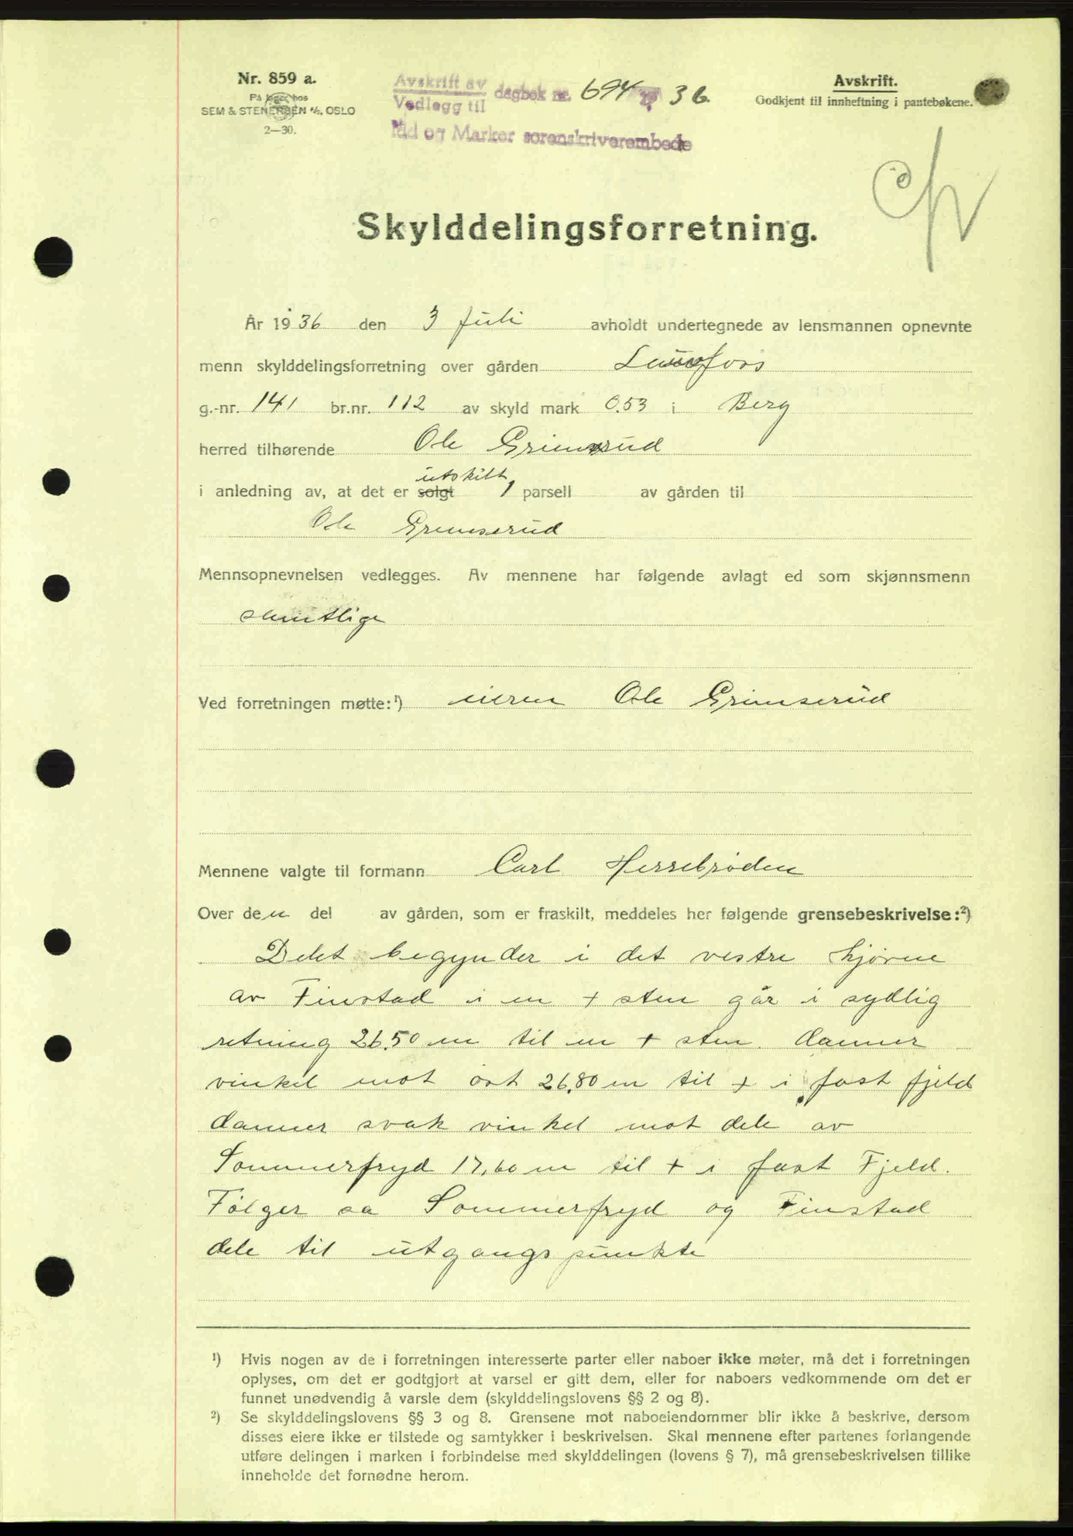 Nr. 859 a.
På lager hos
SEM & STENERSEN A/S, OSLO
2—30.
Avskrift av
Vedlegg til
dagbok nr. 694 1936.
Idd og Marker sorenskriverembede
Avskrift.
Godkjent til innheftning i pantebøkene.
Skylddelingsforretning.
År 1936 den 3 Juli avholdt undertegnede av lensmannen opnevnte
menn skylddelingsforretning over gården
g.-nr. 141 br.nr. 112 av skyld mark 0.53 i Berg
herred tilhørende Ole Grimsrud
utskilt
i anledning av, at det er solgt 1 parsell av gården til
Ole Grimserud
Mennsopnevnelsen vedlegges. Av mennene har følgende avlagt ed som skjønnsmenn
samtlige
Ved forretningen møtte:¹) eieren Ole Grimserud
Mennene valgte til formann Carl Herrebrøden
Over den del av gården, som er fraskilt, meddeles her følgende grensebeskrivelse:²)
Delet begynder i det vestre hjørne
av Finstad i en + sten går i sydlig
retning 26.50 m til en + sten. danner
vinkel mot øst 26,80 m til + i fast fjeld
danner svak vinkel mot dele av
Sommerfryd 17,60 m til + i fast Fjeld.
Følger sa Sommerfryd og Finstad
dele til utgangspunkte
¹) Hvis nogen av de i forretningen interesserte parter eller naboer ikke møter, må det i forretningen
oplyses, om det er godtgjort at varsel er gitt dem, eller for naboers vedkommende om det er
funnet unødvendig å varsle dem (skylddelingslovens §§ 2 og 8).
²) Se skylddelingslovens §§ 3 og 8. Grensene mot naboeiendommer blir ikke å beskrive, dersom
disses eiere ikke er tilstede og samtykker i beskrivelsen. Skal mennene efter partenes forlangende
utføre delingen i marken i forbindelse med skylddelingen (lovens § 7), må grensebeskrivelsen tillike
inneholde det fornødne herom.